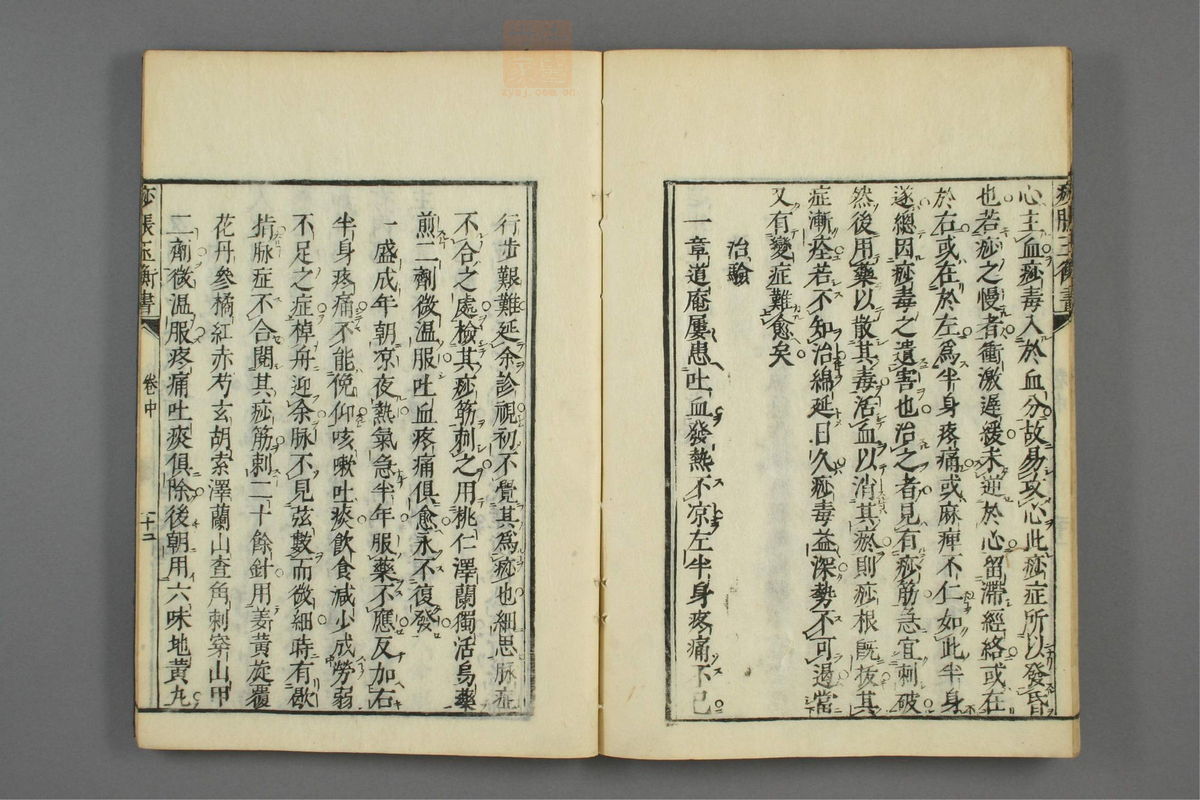 心主血痧毒入於血分故易攻心此痧症所以發昏
也若痧之慢者衝激遲緩未逆於心留滯經絡或在
於右或在於左為半身疼痛或麻痺不仁如此半身
遂總因痧毒之遺害也治之者見有痧筋急宜刺破
然後用藥以散其毒活血以消其瘀則痧根既拔其
症漸痊若不知治綿延日久痧毒益深勢不可遏當
又有變症難愈矣
治驗
一章道庵屢患吐血發熱不凉左半身疼痛不已
行步艱難延余診視初不覺其為痧也細思脉症
不合之處檢其痧筋刺之用桃仁澤蘭獨活烏藥
煎二劑微温服吐血疼痛俱愈永不復發
一盛成年朝凉夜熱氣急半年服藥不應反加右
半身疼痛不能俛仰咳嗽吐痰飲食减少成勞弱
不足之症棹舟迎余脉不見弦數而微細時有歇
指脉症不合閱其痧筋刺二十餘針用姜黄旋覆
花丹參橘紅赤芍玄胡索澤蘭山查角刺穿山甲
二劑微温服疼痛吐痰俱除後朝用六味地黄九
痧脹玉衡書
卷中
十二
zysj.com.cn